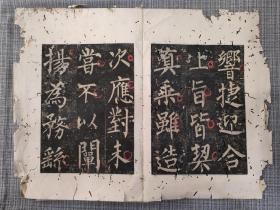 響捷迎合
上旨皆契
真乘雖造
次應對未
嘗不以闡
揚為務繇